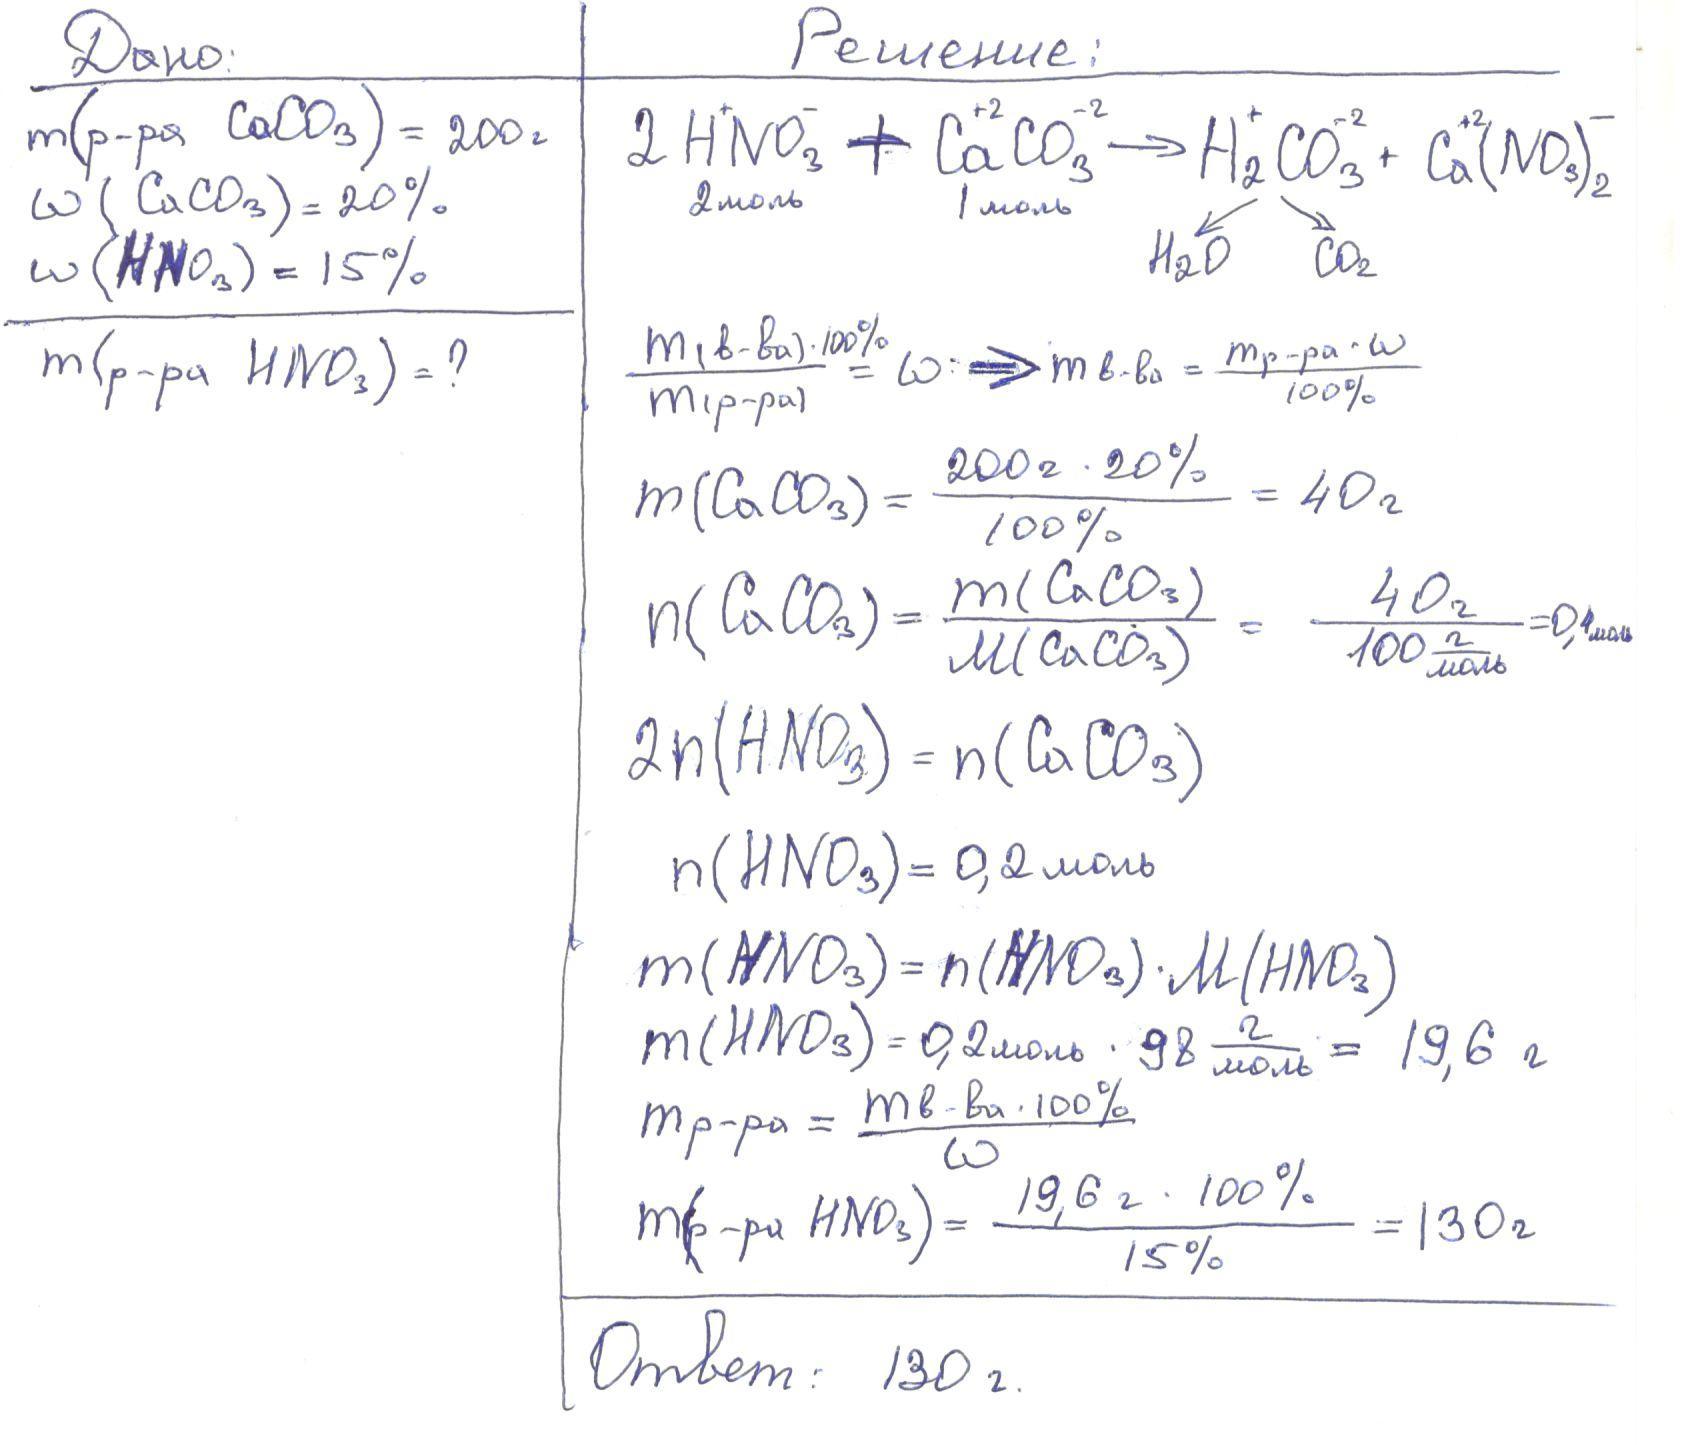 Дано:
m(р-ра CaCO₃) = 200г
ω (CaCO₃) = 20%
ω (HNO₃) = 15%
m(р-ра HNO₃) = ?
Решение:
2H⁺NO₃⁻ + Ca⁺²CO₃⁻² → H₂⁺CO₃⁻² + Ca⁺²(NO₃)₂⁻
2 моль 1 моль
H₂O CO₂
m(в-ва)·100% / m(р-ра) = ω ⇒ m в-ва = m р-ра · ω / 100%
m(CaCO₃) = 200г · 20% / 100% = 40г
n(CaCO₃) = m(CaCO₃) / M(CaCO₃) = 40г / 100 г/моль = 0,4моль
2n(HNO₃) = n(CaCO₃)
n(HNO₃) = 0,2 моль
m(HNO₃) = n(HNO₃) · M(HNO₃)
m(HNO₃) = 0,2моль · 98 г/моль = 19,6 г
m р-ра = m в-ва · 100% / ω
m(р-ра HNO₃) = 19,6 г · 100% / 15% = 130г
Ответ: 130 г.